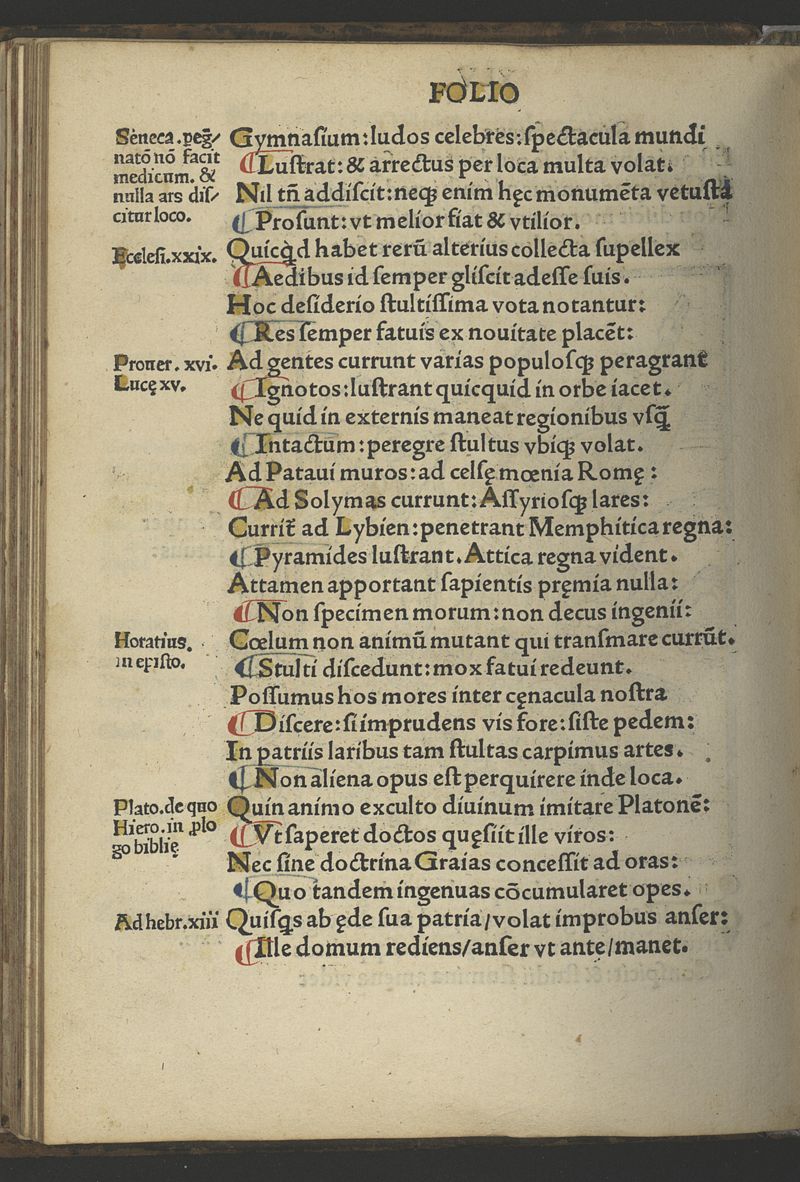 FOLIO
Seneca .pegͥ/
natō nō facit
medicum. &
nulla ars diſ/
citur loco.
Eccleſi.xxix.
Prouer. xvi.
Lucę xv.
Horatius.
in epiſto.
Plato.de quo
Hiero.in ꝓlo
go biblię
Ad hebr.xiii
Gymnaſium:ludos celebres:ſpectacula mundi
¶Luſtrat:& arrectus per loca multa volat.
Nil tn̄ addiſcit:neqꝫ enim hęc monumēta vetuſta
¶Proſunt:vt melior fiat & vtilior.
Quicqd habet rerū alterius collecta ſupellex
¶Aedibus id ſemper gliſcit adeſſe ſuis.
Hoc deſiderio ſtultiſſima vota notantur:
¶Res ſemper fatuis ex nouitate placēt:
Ad gentes currunt varias populoſqꝫ peragrant
¶Ignotos:luſtrant quicquid in orbe iacet.
Ne quid in externis maneat regionibus vſqꝫ
¶Intactum:peregre ſtultus vbiqꝫ volat.
Ad Pataui muros:ad celſę mœnia Romę :
¶Ad Solymas currunt:Aſſyrioſqꝫ lares:
Currit̄ ad Lybien:penetrant Memphitica regna:
¶Pyramides luſtrant.Attica regna vident.
Attamen apportant ſapientis pręmia nulla:
¶Non ſpecimen morum:non decus ingenii:
Cœlum non animū mutant qui tranſmare currūt.
¶Stulti diſcedunt:mox fatui redeunt.
Poſſumus hos mores inter cęnacula noſtra
¶Diſcere:ſi imprudens vis fore:ſiſte pedem:
In patriis laribus tam ſtultas carpimus artes.
¶Non aliena opus eſt perquirere inde loca.
Quin animo exculto diuinum imitare Platonē:
¶Vt ſaperet doctos quęſiit ille viros:
Nec ſine doctrina Graias conceſſit ad oras:
¶Quo tandem ingenuas cōcumularet opes.
Quiſqs ab ęde ſua patria/volat improbus anſer:
¶Ille domum rediens/anſer vt ante/manet.